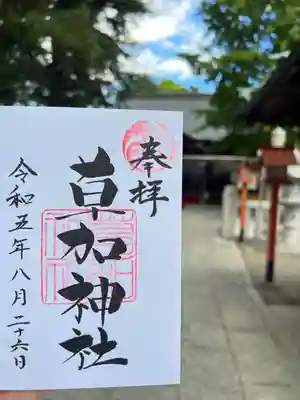 奉拝
草加神社
令和五年八月二十六日